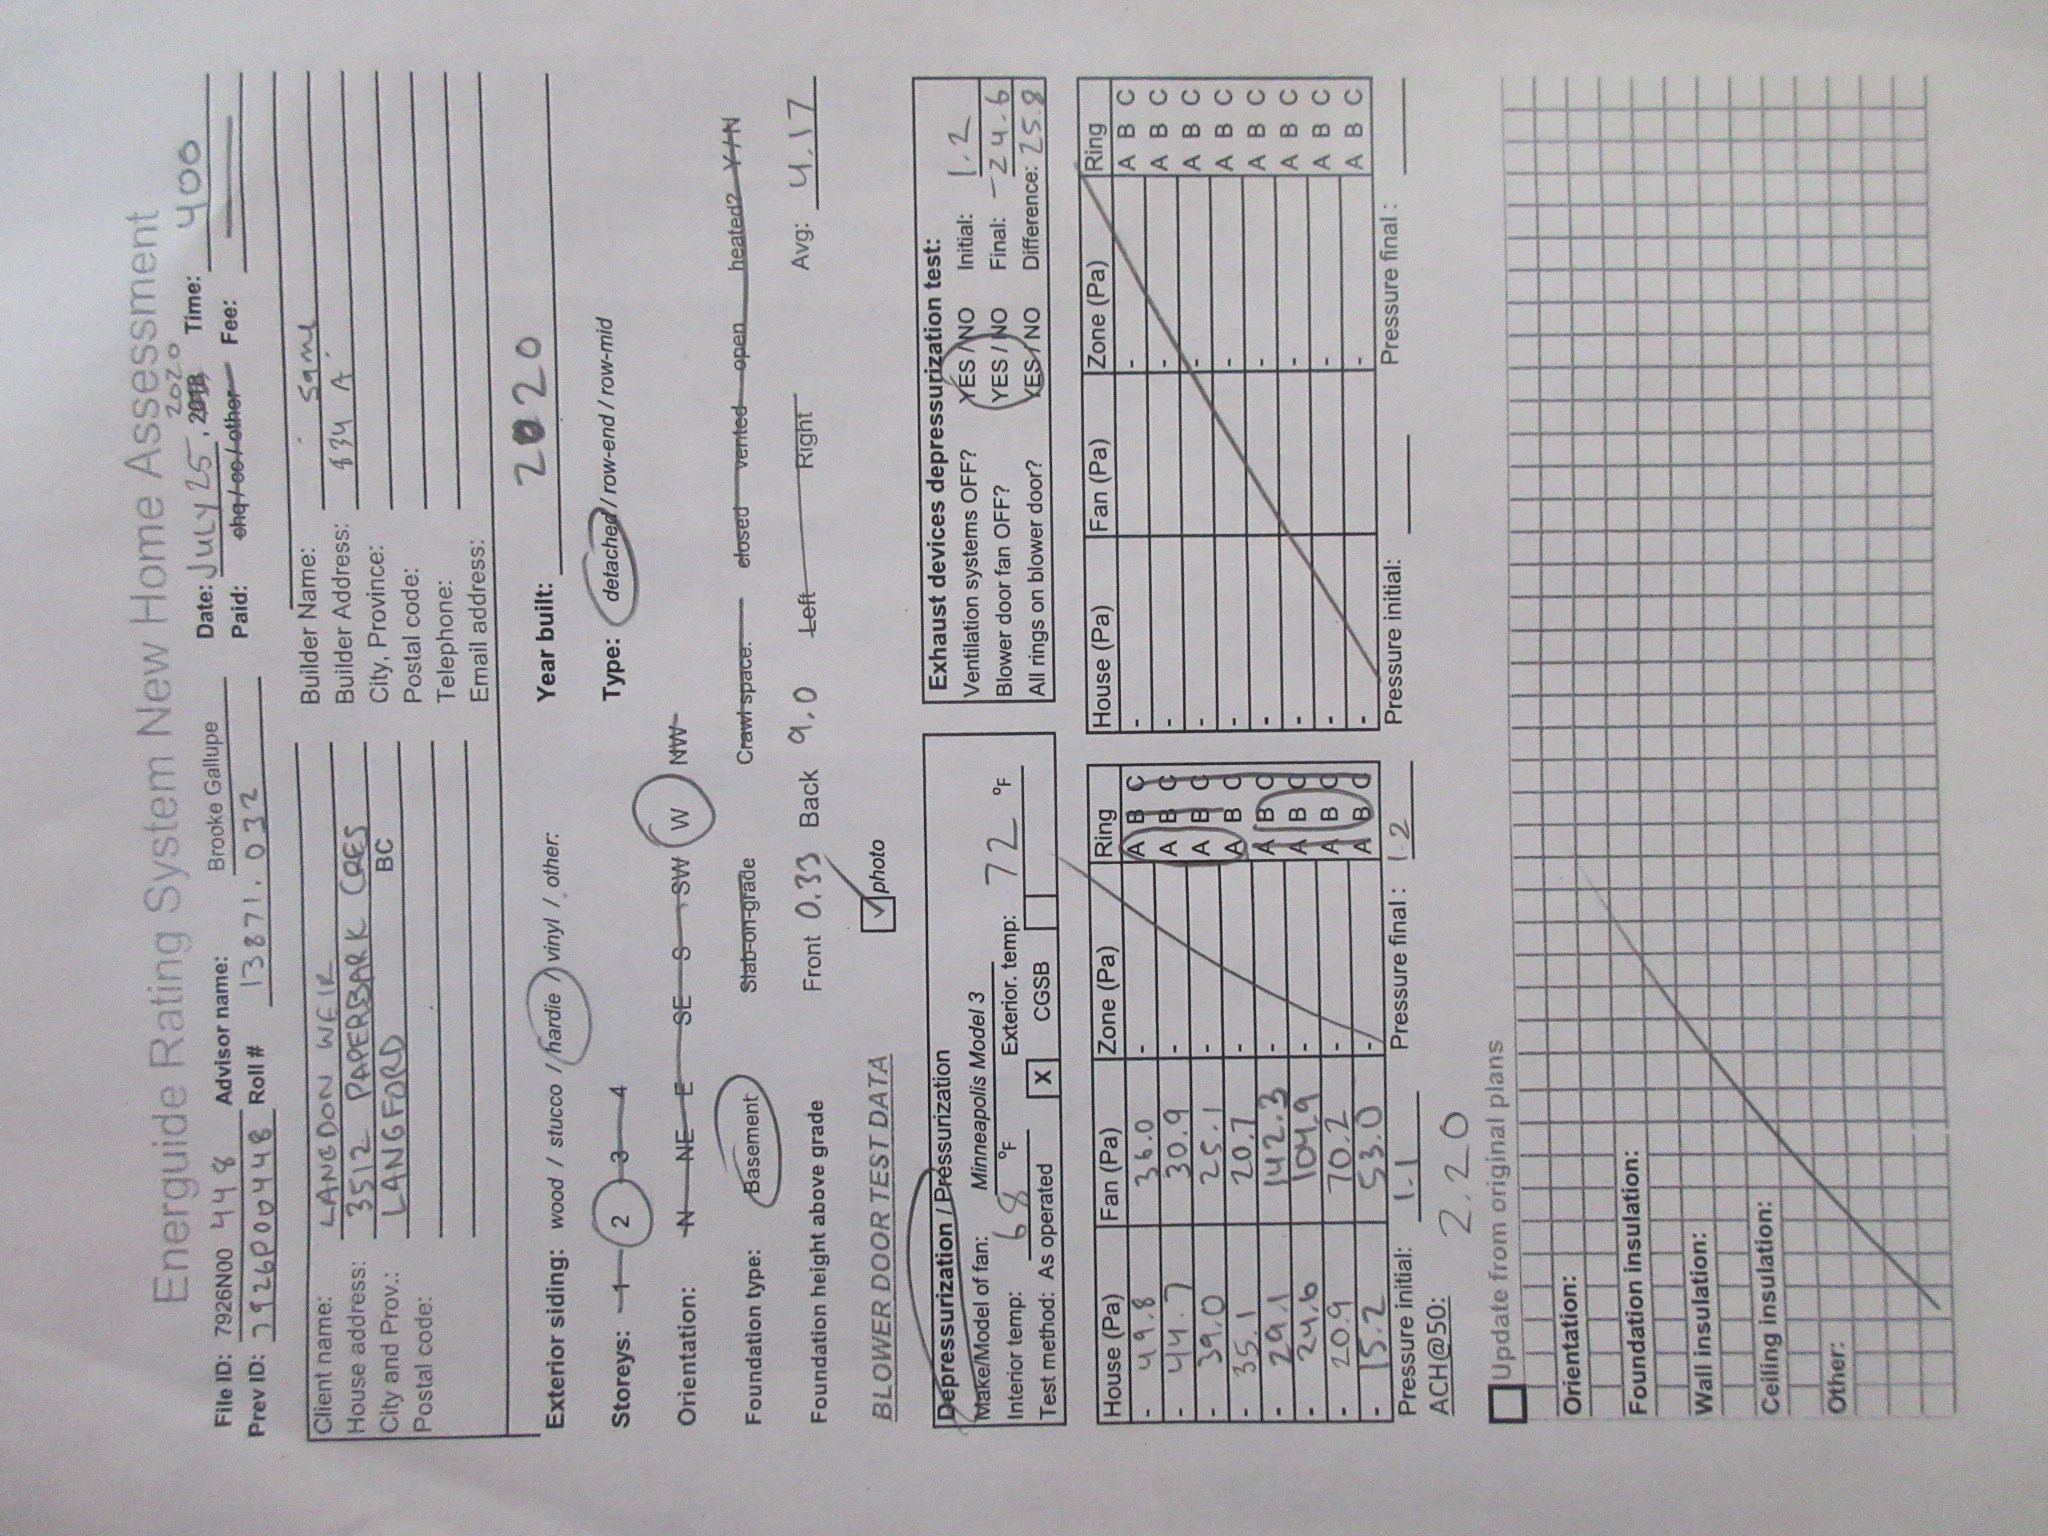 Energuide Rating System New Home Assessment
File ID: 7926N00 448 Advisor name: Brooke Gallupe Date: July 25, 2018 2020 Time: 400
Prev ID: 7926P00448 Roll # 13871.032 Paid: chq / cc / other Fee:
Client name: LANGDON WEIR Builder Name: Same
House address: 3512 PAPERBARK CRES Builder Address: 834 A
City and Prov.: LANGFORD BC City, Province:
Postal code: Postal code:
Telephone:
Email address:
Exterior siding: wood / stucco / hardie / vinyl / other: Year built: 2020
Storeys: 1 2 3 4 Type: detached / row-end / row-mid
Orientation: N NE E SE S SW W NW
Foundation type: Basement Slab-on-grade Crawl space: closed vented open heated? Y / N
Foundation height above grade Front 0.33 Back 9.0 Left Right Avg: 4.17
photo
BLOWER DOOR TEST DATA
Depressurization / Pressurization
Make/Model of fan: Minneapolis Model 3
Interior temp: 68 °F Exterior. temp: 72 °F
Test method: As operated X CGSB
Exhaust devices depressurization test:
Ventilation systems OFF? YES / NO Initial: 1.2
Blower door fan OFF? YES / NO Final: -24.6
All rings on blower door? YES / NO Difference: 25.8
House (Pa) Fan (Pa) Zone (Pa) Ring
- 49.8 36.0 - A B C
- 44.7 30.9 - A B C
- 39.0 25.1 - A B C
- 35.1 20.7 - A B C
- 29.1 142.3 - A B C
- 24.6 104.9 - A B C
- 20.9 70.2 - A B C
- 15.2 53.0 - A B C
Pressure initial: 1.1 Pressure final : 1.2
House (Pa) Fan (Pa) Zone (Pa) Ring
- - A B C
- - A B C
- - A B C
- - A B C
- - A B C
- - A B C
- - A B C
- - A B C
Pressure initial: Pressure final :
ACH@50: 2.20
Update from original plans
Orientation:
Foundation insulation:
Wall insulation:
Ceiling insulation:
Other: